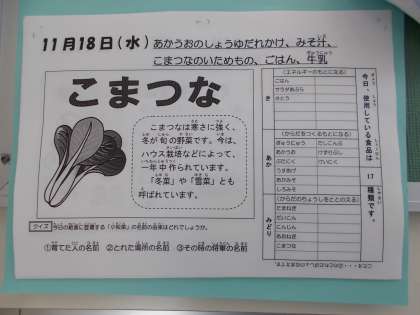 11月18日(水) あかうおのしょうゆだれかけ、みそ汁、
こまつなのいためもの、ごはん、牛乳
こまつな
こまつなは寒さに強く、
冬が旬の野菜です。今は、
ハウス栽培などによって、
一年中作られています。
「冬菜」や「雪菜」とも
呼ばれています。
クイズ 今日の給食に登場する「小松菜」の名前の由来はどれでしょうか。
①育てた人の名前 ②とれた場所の名前 ③その時の将軍の名前
今日、使用している食品は 17 種類です。
き
(エネルギーのもとになる)
ごはん
サラダあぶら
さとう
(からだをつくるもとになる)
ぎゅうにゅう たしにぶし
あかうお
ぶたにく
うすあげ
あかみそ
しろみそ
みどり
(からだのちょうしをととのえる)
たまねぎ
だいこん
にんじん
こまつな